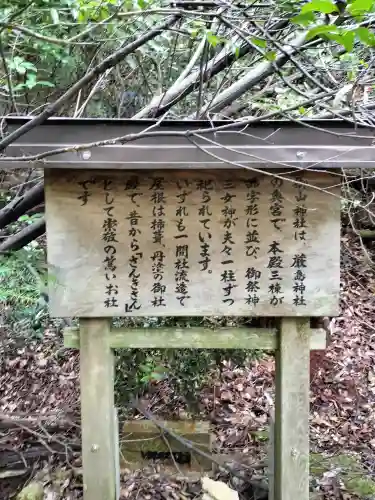 山神社は、厳島神社
の奥宮で、本殿三棟が
品字形に並び、御祭神
三女神が夫々一柱ずつ
祀られています。
いずれも一間社流造で
屋根は柿葺、丹塗の御社
殿で、昔から「ざんきさん」
として崇敬の篤いお社
です。